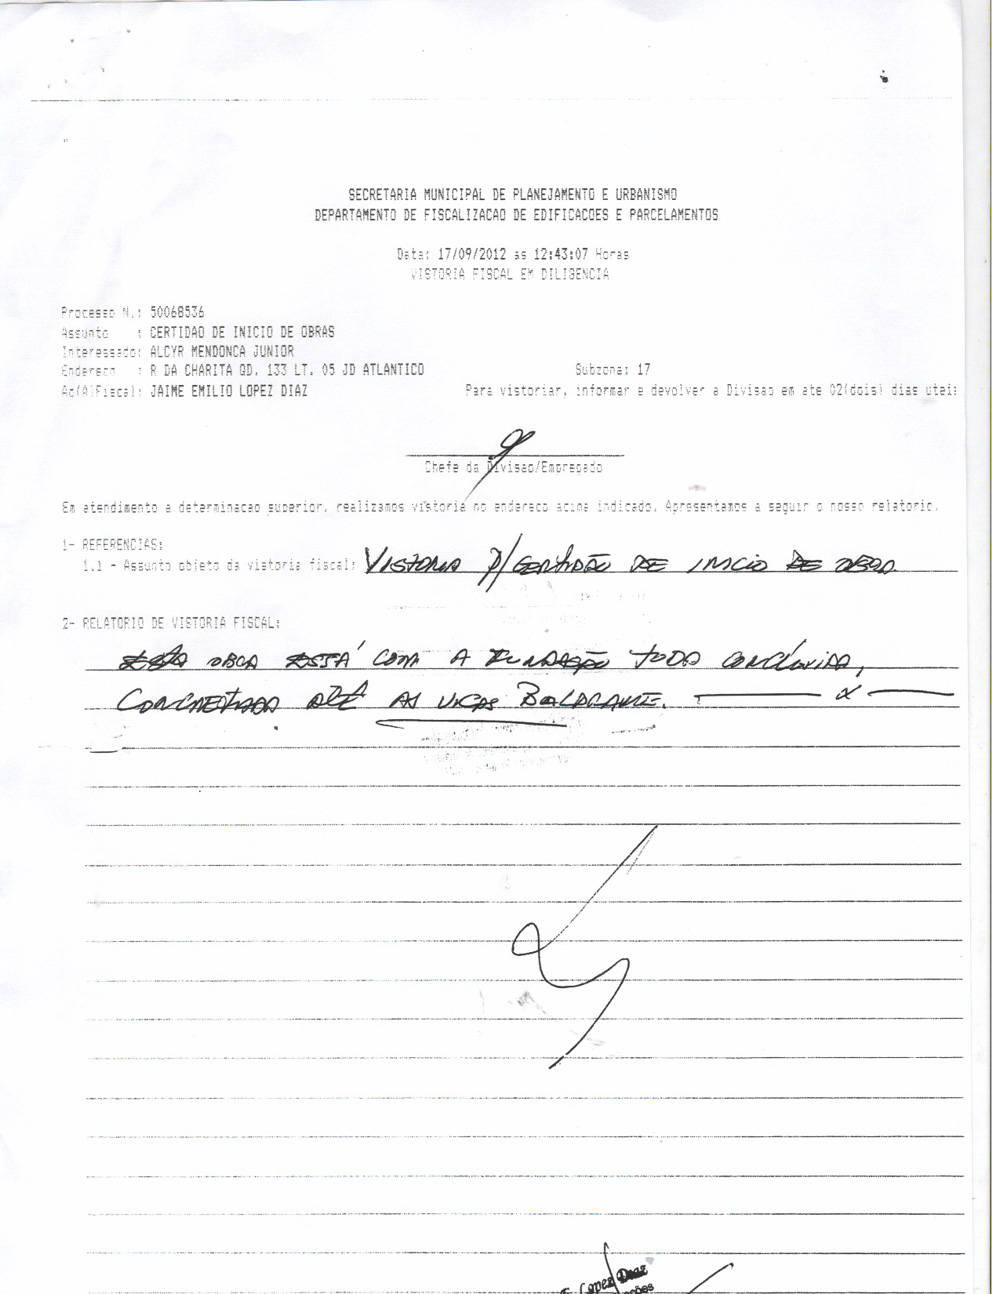 SECRETARIA MUNICIPAL DE PLANEJAMENTO E URBANISMO
DEPARTAMENTO DE FISCALIZACAO DE EDIFICACOES E PARCELAMENTOS
Data: 17/09/2012 as 12:43:07 Horas
VISTORIA FISCAL EM DILIGENCIA
Processo N.: 50068536
Assunto : CERTIDAO DE INICIO DE OBRAS
Interessado: ALCYR MENDONCA JUNIOR
Endereco : R DA CHARITA QD. 133 LT. 05 JD ATLANTICO Subzona: 17
Ao(A)Fiscal: JAIME EMILIO LOPEZ DIAZ Para vistoriar, informar e devolver a Divisao em ate 02(dois) dias uteis
Chefe da Divisao/Empregado
Em atendimento a determinacao superior, realizamos vistoria no endereco acima indicado. Apresentamos a seguir o nosso relatorio.
1- REFERENCIAS:
1.1 - Assunto objeto da vistoria fiscal: VISTORIA P/ CERTIDÃO DE INICIO DE OBRA
2- RELATORIO DE VISTORIA FISCAL:
ESTA OBRA ESTÁ COM A FUNDAÇÃO TODA CONCLUIDA,
CONCRETADA ATÉ AS VIGAS BALDRAME.
Lopez Diaz